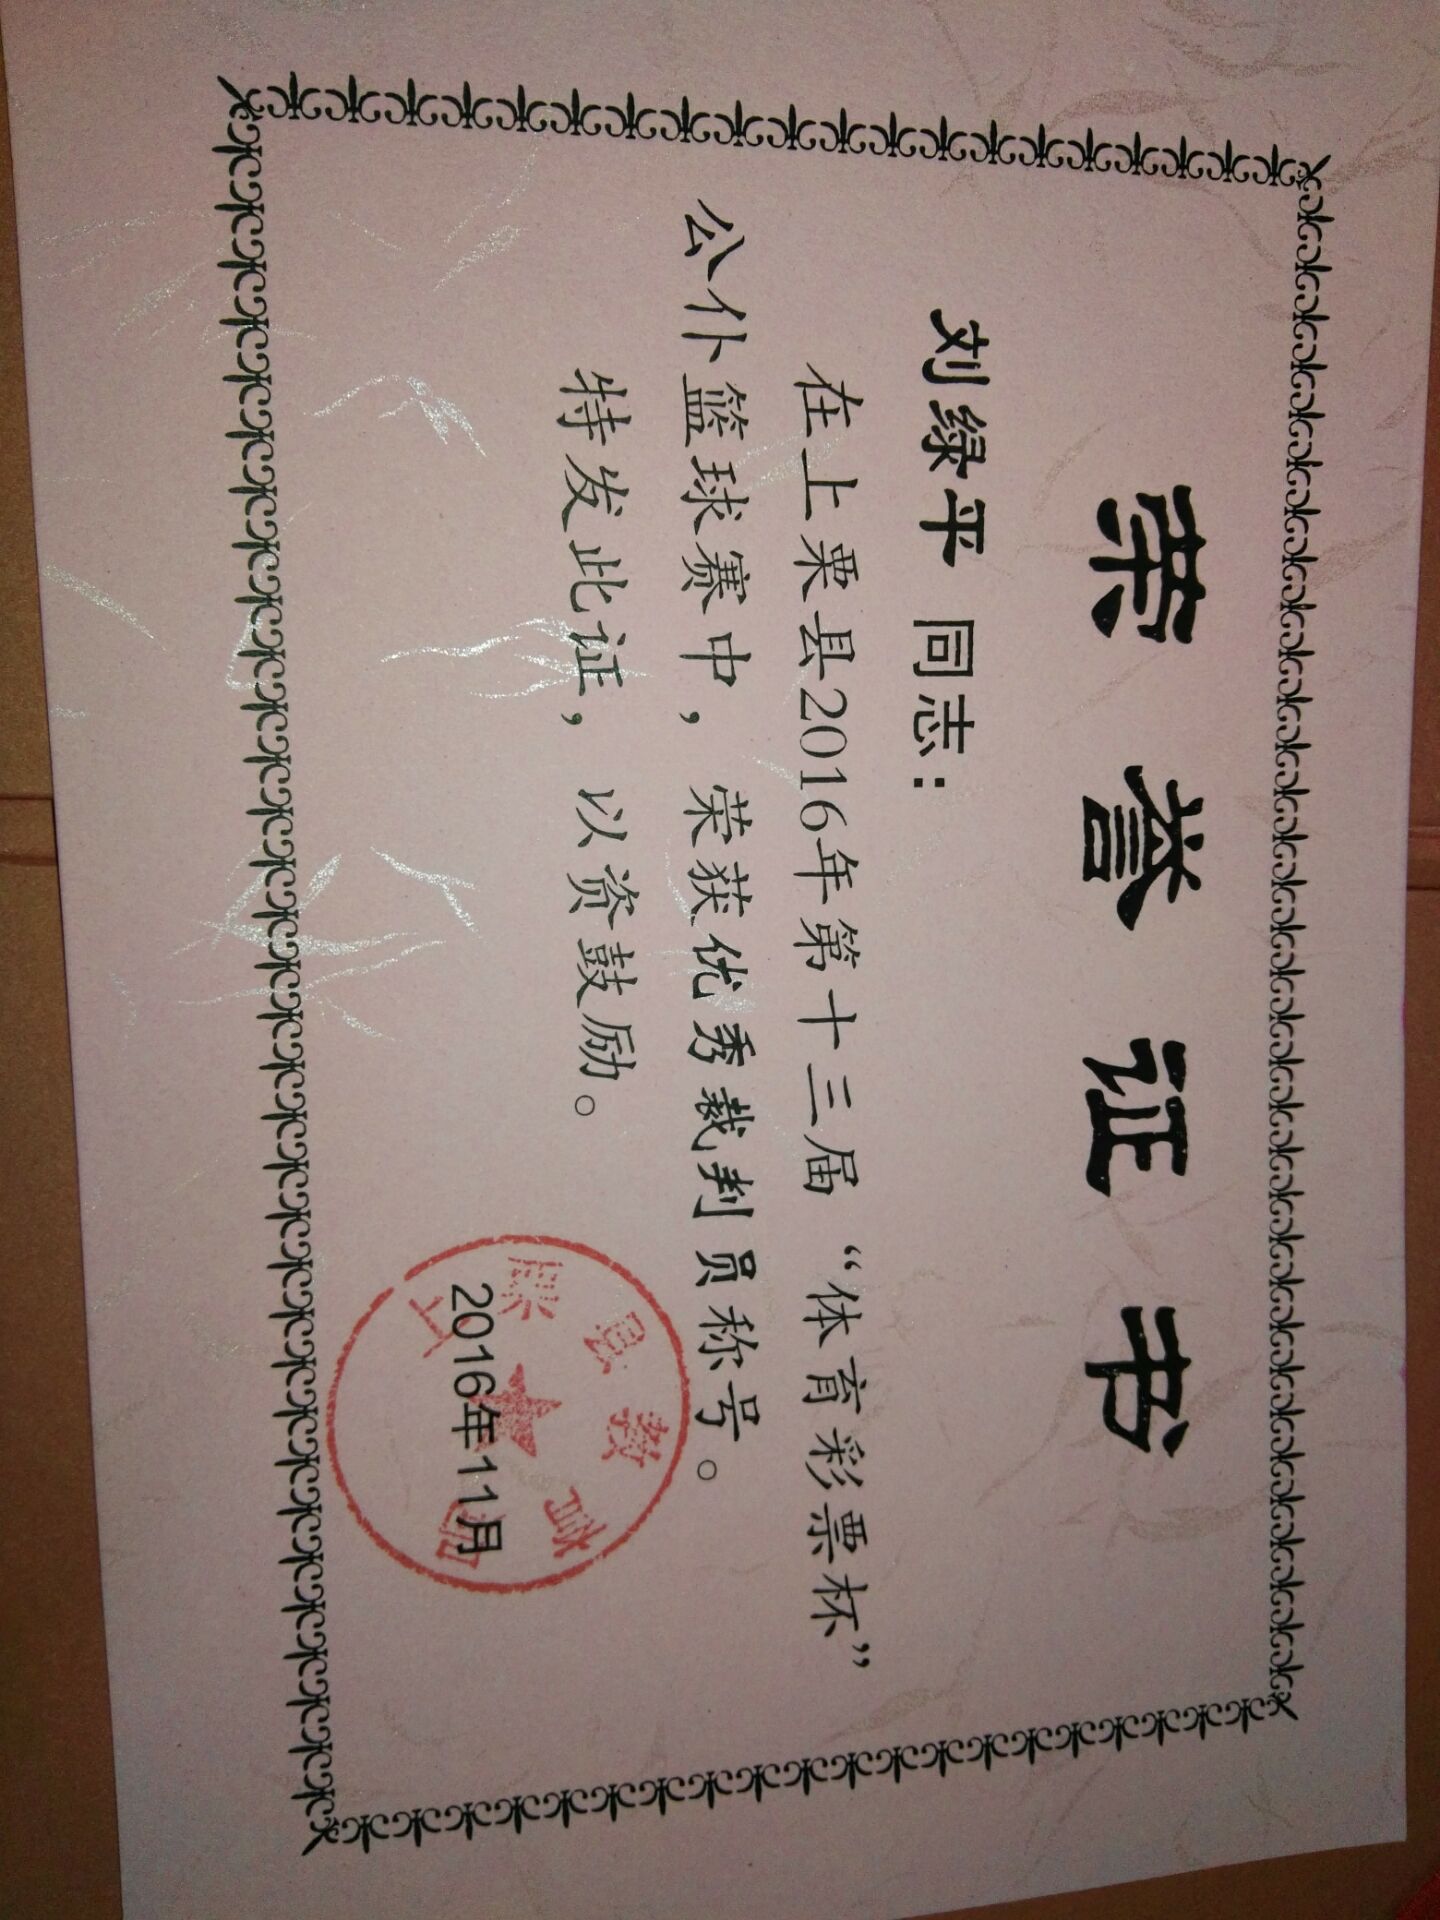 荣誉证书
刘绿平 同志：
在上栗县2016年第十三届“体育彩票杯”
公仆篮球赛中，荣获优秀裁判员称号。
特发此证，以资鼓励。
上栗县教育局
2016年11月